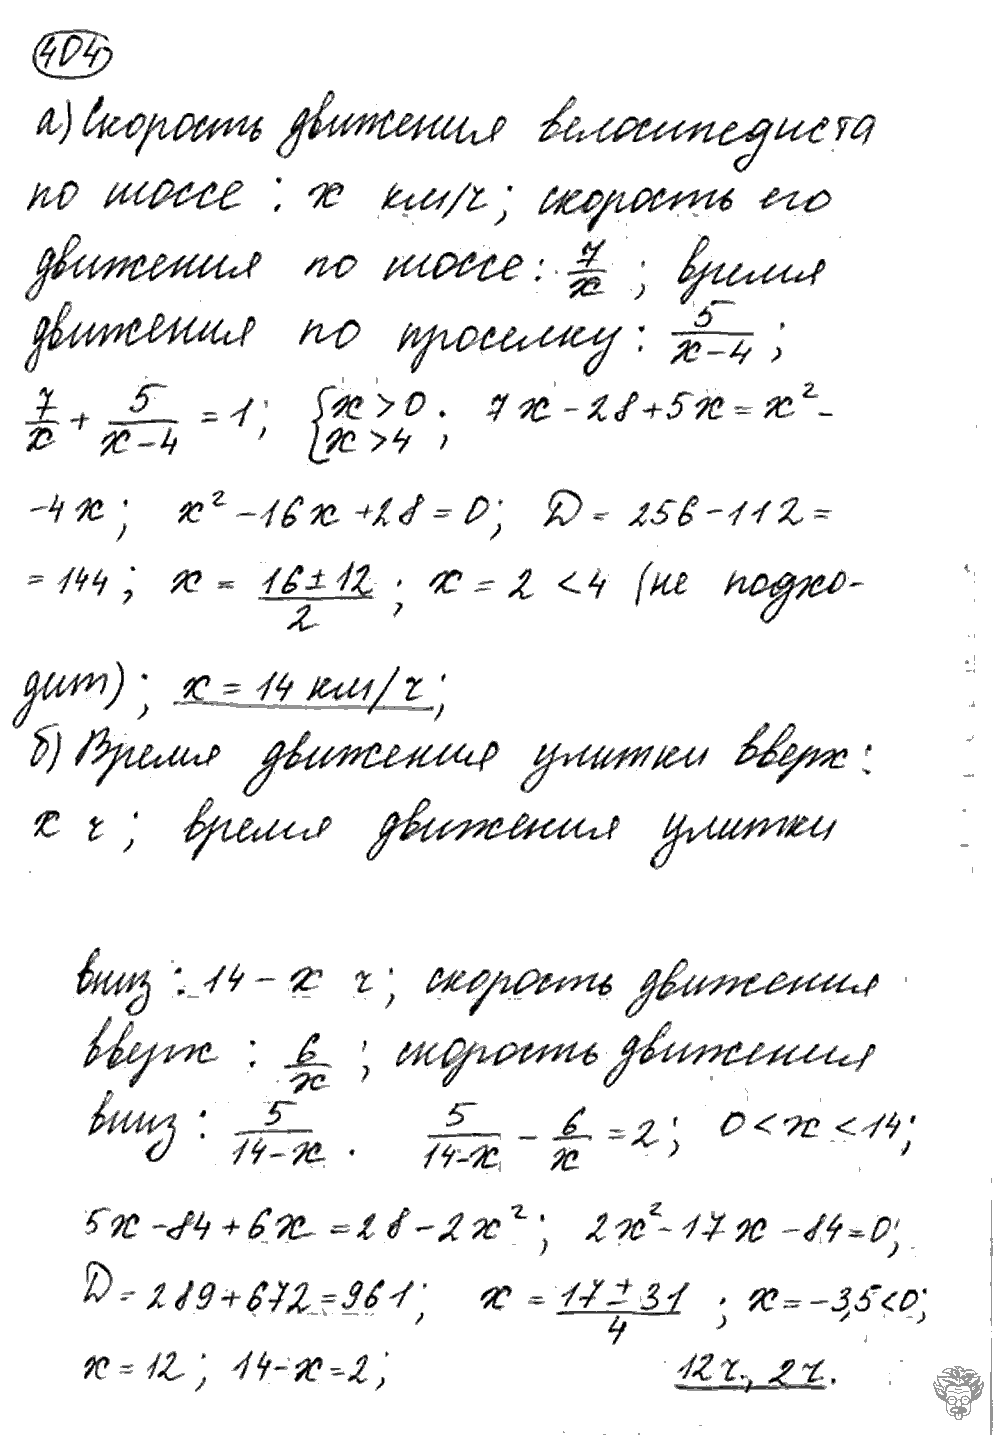 404
а) Скорость движения велосипедиста
по шоссе : x км/ч; скорость его
движения по шоссе: 7/x ; время
движения по проселку: 5/(x-4) ;
7/x + 5/(x-4) = 1; {x>0 x>4 ; 7x-28+5x=x²-
-4x; x²-16x+28=0; D=256-112=
=144; x = (16±12)/2 ; x=2<4 (не подхо-
дит); x=14 км/ч;
б) Время движения улитки вверх:
x ч; время движения улитки
вниз: 14-x ч; скорость движения
вверх : 6/x ; скорость движения
вниз: 5/(14-x) . 5/(14-x) - 6/x = 2; 0<x<14;
5x-84+6x=28-2x²; 2x²-17x-84=0;
D=289+672=961; x = (17±31)/4 ; x=-3,5<0;
x=12; 14-x=2; 12ч., 2ч.